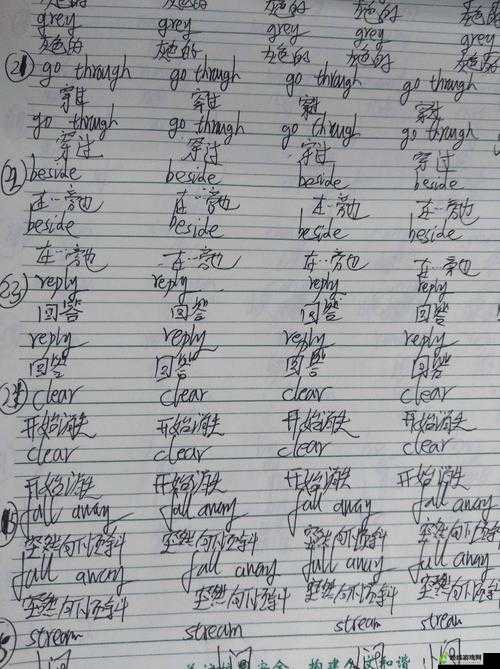 灰色的 灰色的 灰色的
grey grey grey grey
灰色的 灰色的 灰色的 灰色的 grey
(21) go through go through go through go through
穿过 穿过 穿过 穿过
go through go through go through go through
穿过 穿过 穿过 穿过
beside beside beside beside
在…旁边 在…旁边 在…旁边 在…旁边
beside beside beside beside
在…旁边 在…旁边 在…旁边 在…旁边
(23) reply reply reply reply
回答 回答 回答 回答
reply reply reply reply
回答 回答 回答 回答
clear clear clear clear
开始消失 开始消失 开始消失 开始消失
clear clear clear clear
开始消失 开始消失 开始消失 开始消失
fall away fall away fall away fall away
突然向下倾斜 突然向下倾斜 突然向下倾斜 突然向下倾斜
fall away fall away fall away fall away
突然向下倾斜 突然向下倾斜 突然向下倾斜 突然向下倾斜
stream stream stream stream
小河 小河 小河